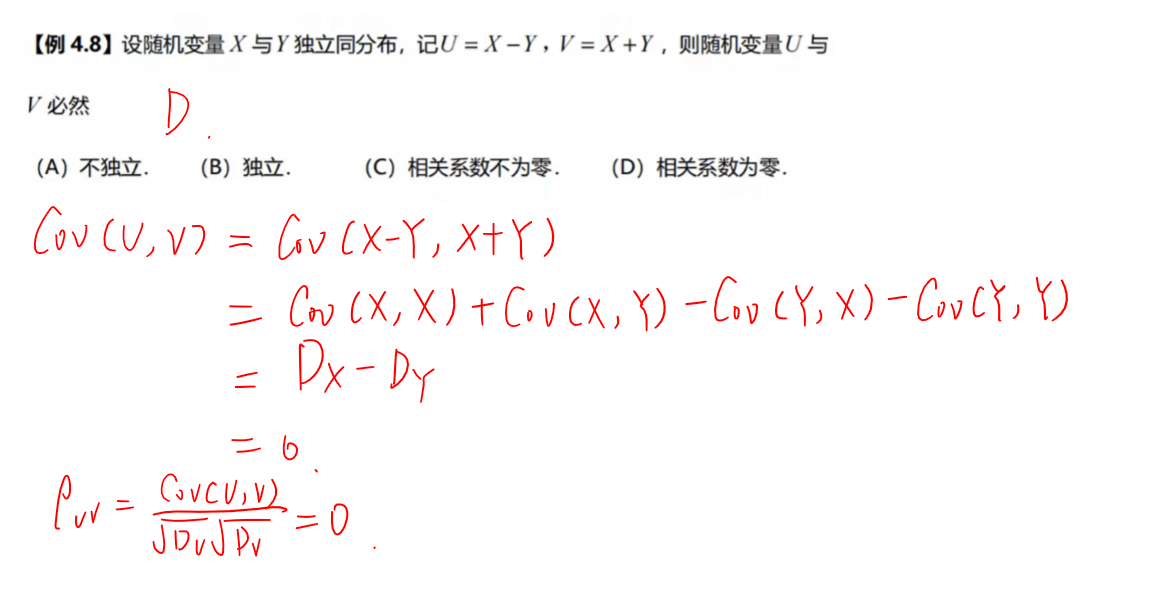 【例 4.8】设随机变量 X 与 Y 独立同分布，记 U = X − Y，V = X + Y，则随机变量 U 与
V 必然
D.
（A）不独立. （B）独立. （C）相关系数不为零. （D）相关系数为零.
Cov (U, V) = Cov (X-Y, X+Y)
= Cov (X, X) + Cov (X, Y) - Cov (Y, X) - Cov (Y, Y)
= DX - DY
= 0.
ρUV = Cov(U,V) / √DU √DV = 0.